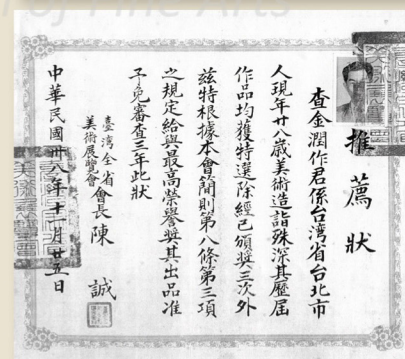 of Fine Arts
推薦狀
查金潤作君係台湾省台北市
人現年廿八歲美術造詣殊深其歷屆
作品均獲特選除經已頒獎三次外
茲特根據本會簡則第八條第三項
之規定給與最高榮譽獎其出品准
予免審查三年此狀
臺湾全省
美術展覽會
會長陳誠
中華民國卅八年十一月廿五日